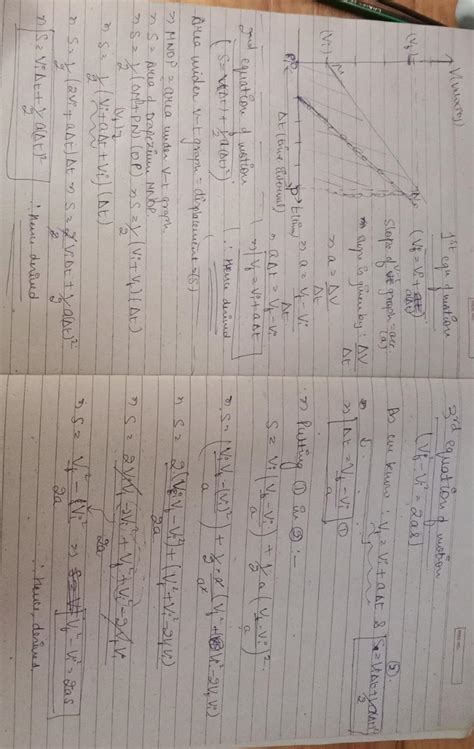 V (velocity)
(Vf)
(Vi)
M
N
O
P
t (time)
Δt (time interval)
1st eqn of motion
(Vf = Vi + aΔt)
Slope of v-t graph = acc (a)
⇒ slope is given by : ΔV/Δt
⇒ a = ΔV/Δt
⇒ a = Vf - Vi/Δt
⇒ aΔt = Vf - Vi
⇒ Vf = Vi + aΔt
∴ Hence derived
2nd equation of motion
(S = ViΔt + 1/2 a(Δt)²)
Area under v-t graph = displacement = (S)
⇒ MNOP = area under v-t graph
⇒ S = Area of trapezium MNOP
⇒ S = 1/2 (OM + PN) (OP) ⇒ S = 1/2 (Vi + Vf) (Δt)
⇒ S = 1/2 (Vi + aΔt + Vi) (Δt)
⇒ S = 1/2 (2Vi + aΔt) Δt ⇒ S = 2ViΔt/2 + 1/2 a(Δt)²
⇒ S = ViΔt + 1/2 a(Δt)²
∴ Hence derived
3rd equation of motion
[Vf² - Vi² = 2aS]
As we know : Vf = Vi + aΔt & S = ViΔt + 1/2 a(Δt)² ②
⇒ Δt = Vf - Vi/a ①
⇒ Putting ① in ② :-
S = Vi (Vf - Vi/a) + 1/2 a (Vf - Vi/a)²
⇒ S = (ViVf - (Vi)²/a) + 1/2 a/a² (Vf² + Vi² - 2VfVi)
⇒ S = 2(ViVf - Vi²) + (Vf² + Vi² - 2VfVi)/2a
⇒ S = 2ViVf - 2Vi² + Vf² + Vi² - 2VfVi/2a
⇒ S = Vf² - Vi²/2a ⇒ Vf² - Vi² = 2aS
∴ Hence derived.